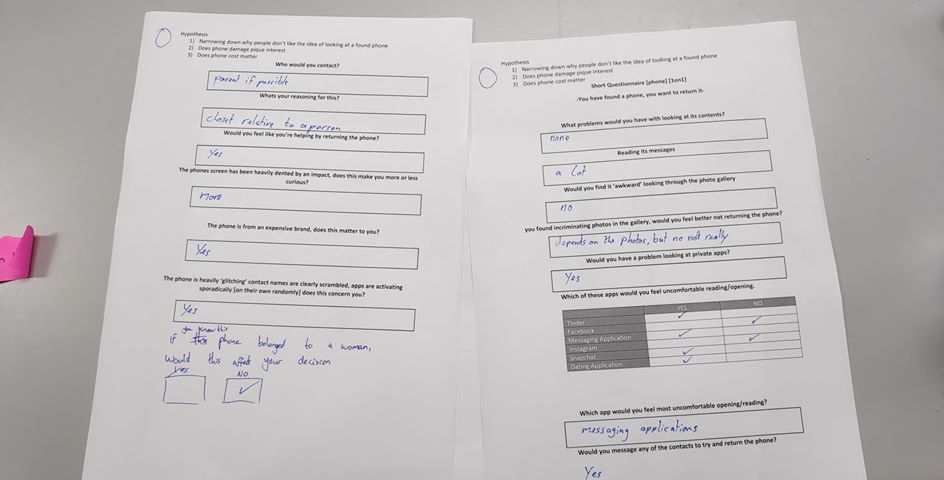 Hypothesis
1) Narrowing down why people don't like the idea of looking at a found phone
2) Does phone damage pique interest
3) Does phone cost matter
Who would you contact?
parent if possible
Whats your reasoning for this?
closet relative to a person
Would you feel like you're helping by returning the phone?
Yes
The phones screen has been heavily dented by an impact, does this make you more or less
curious?
more
The phone is from an expensive brand, does this matter to you?
Yes
The phone is heavily 'glitching' contact names are clearly scrambled, apps are activating
sporadically [on their own randomly] does this concern you?
Yes
you knew this
if phone belonged to a woman,
would this affect your decision
Yes NO
Hypothesis
1) Narrowing down why people don't like the idea of looking at a found phone
2) Does phone damage pique interest
3) Does phone cost matter
Short Questionnaire [phone] [1on1]
-You have found a phone, you want to return it-
What problems would you have with looking at its contents?
none
Reading its messages
a lot
Would you find it 'awkward' looking through the photo gallery
no
you found incriminating photos in the gallery, would you feel better not returning the phone?
depends on the photos, but no not really
Would you have a problem looking at private apps?
Yes
Which of these apps would you feel uncomfortable reading/opening.
YES NO
Tinder
Facebook
Messaging Application
Instagram
Snapchat
Dating Application
Which app would you feel most uncomfortable opening/reading?
messaging applications
Would you message any of the contacts to try and return the phone?
Yes